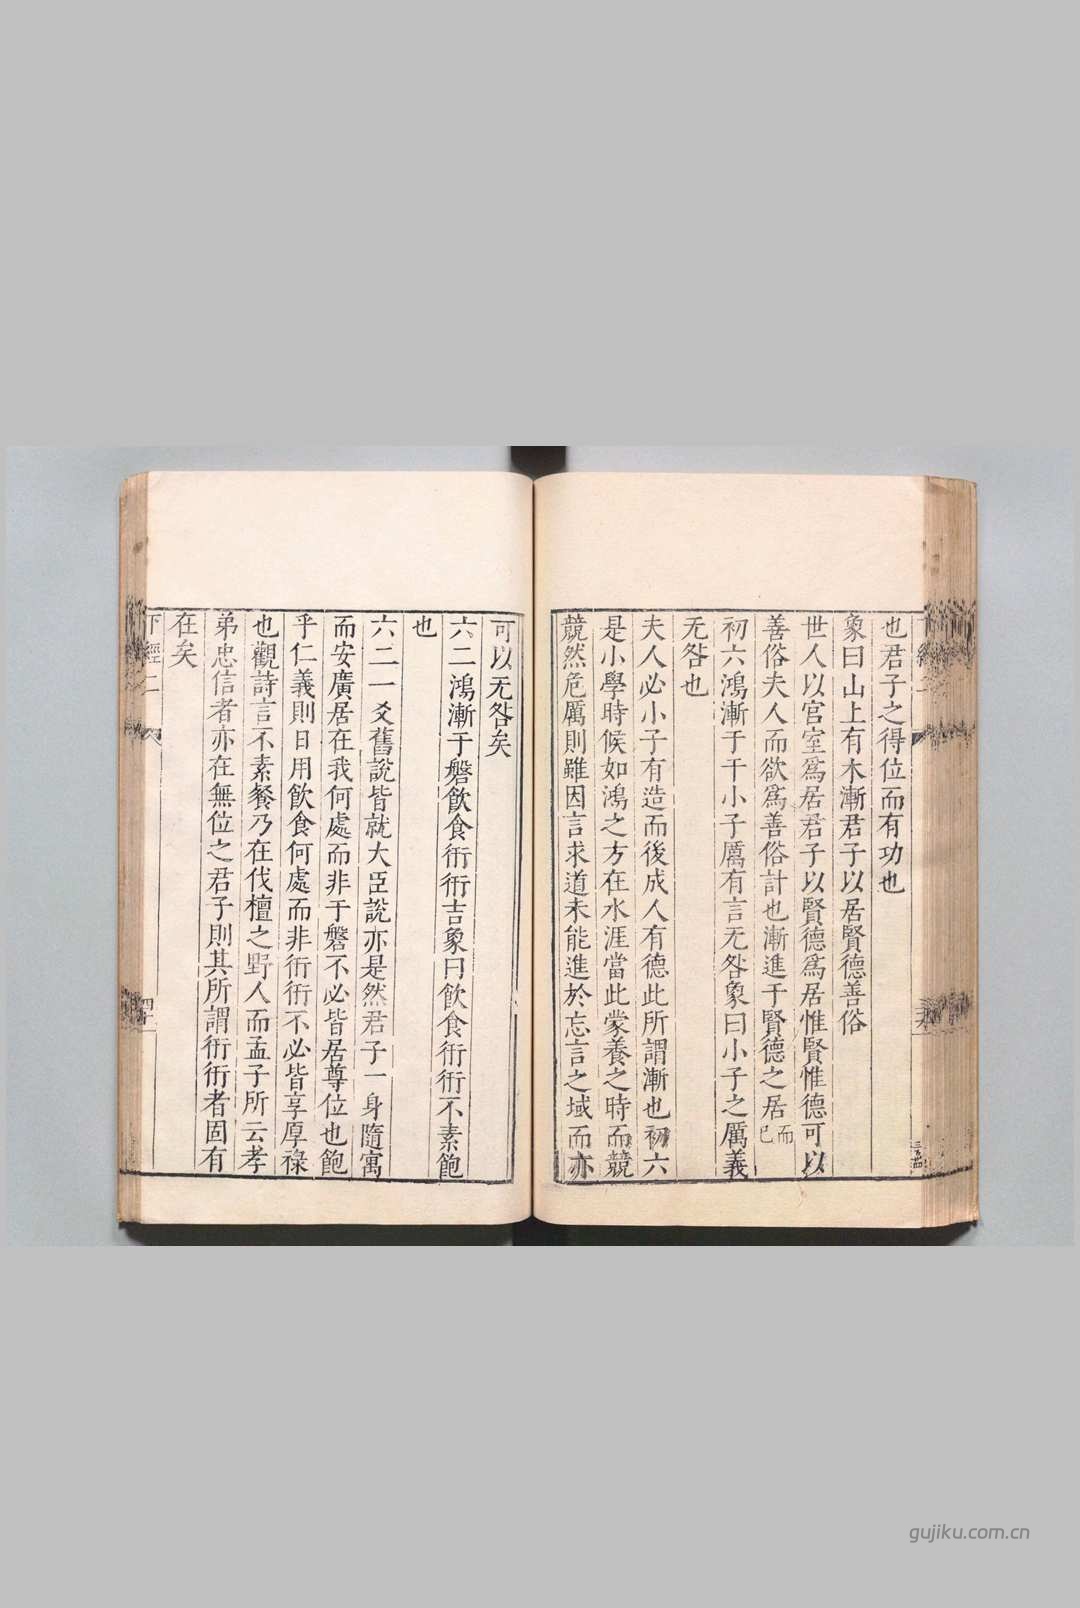 也君子之得位而有功也
象曰山上有木漸君子以居賢德善俗
世人以宮室爲居君子以賢德爲居惟賢惟德可以
善俗夫人而欲爲善俗計也漸進于賢德之居而已
初六鴻漸于干小子厲有言无咎象曰小子之厲義
无咎也
夫人必小子有造而後成人有德此所謂漸也初六
是小學時候如鴻之方在水涯當此蒙養之時而競
競然危厲則雖因言求道未能進於忘言之域而亦
可以无咎矣
六二鴻漸于磐飲食衎衎吉象曰飲食衎衎不素飽
也
六二一爻舊說皆就大臣說亦是然君子一身隨寓
而安廣居在我何處而非于磐不必皆居尊位也飽
乎仁義則日用飲食何處而非衎衎不必皆享厚祿
也觀詩言不素餐乃在伐檀之野人而孟子所云孝
弟忠信者亦在無位之君子則其所謂衎衎者固有
在矣
下經二
gujiku.com.cn